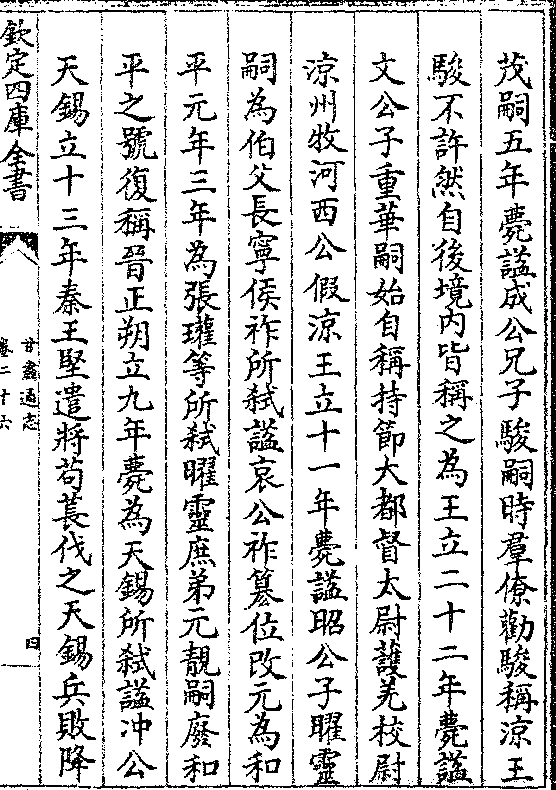 茂嗣五年薨謚成公兄子駿嗣時羣僚勸駿稱涼王
駿不許然自後境內皆稱之為王立二十二年薨謚
文公子重華嗣始自稱持節大都督太尉護羌校尉
涼州牧河西公假涼王立十一年薨謚昭公子曜靈
嗣為伯父長寧侯祚所弑謚哀公祚簒位改元為和
平元年三年為張瓘等所弑曜靈庶弟元靚嗣廢和
平之號復稱晉正朔立九年薨為天錫所弑謚冲公
天錫立十三年秦王堅遣將茍萇伐之天錫兵敗降
欽定四庫全書
甘肅通志
卷二十六
四